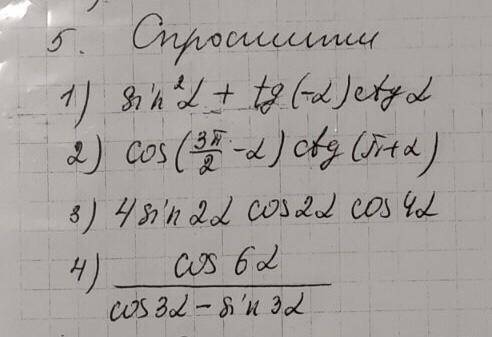 5. Спростити
1) sin²α + tg(-α)ctgα
2) cos(3π/2 - α) ctg(π+α)
3) 4 sin2α cos2α cos4α
4) cos 6α
cos3α - sin3α